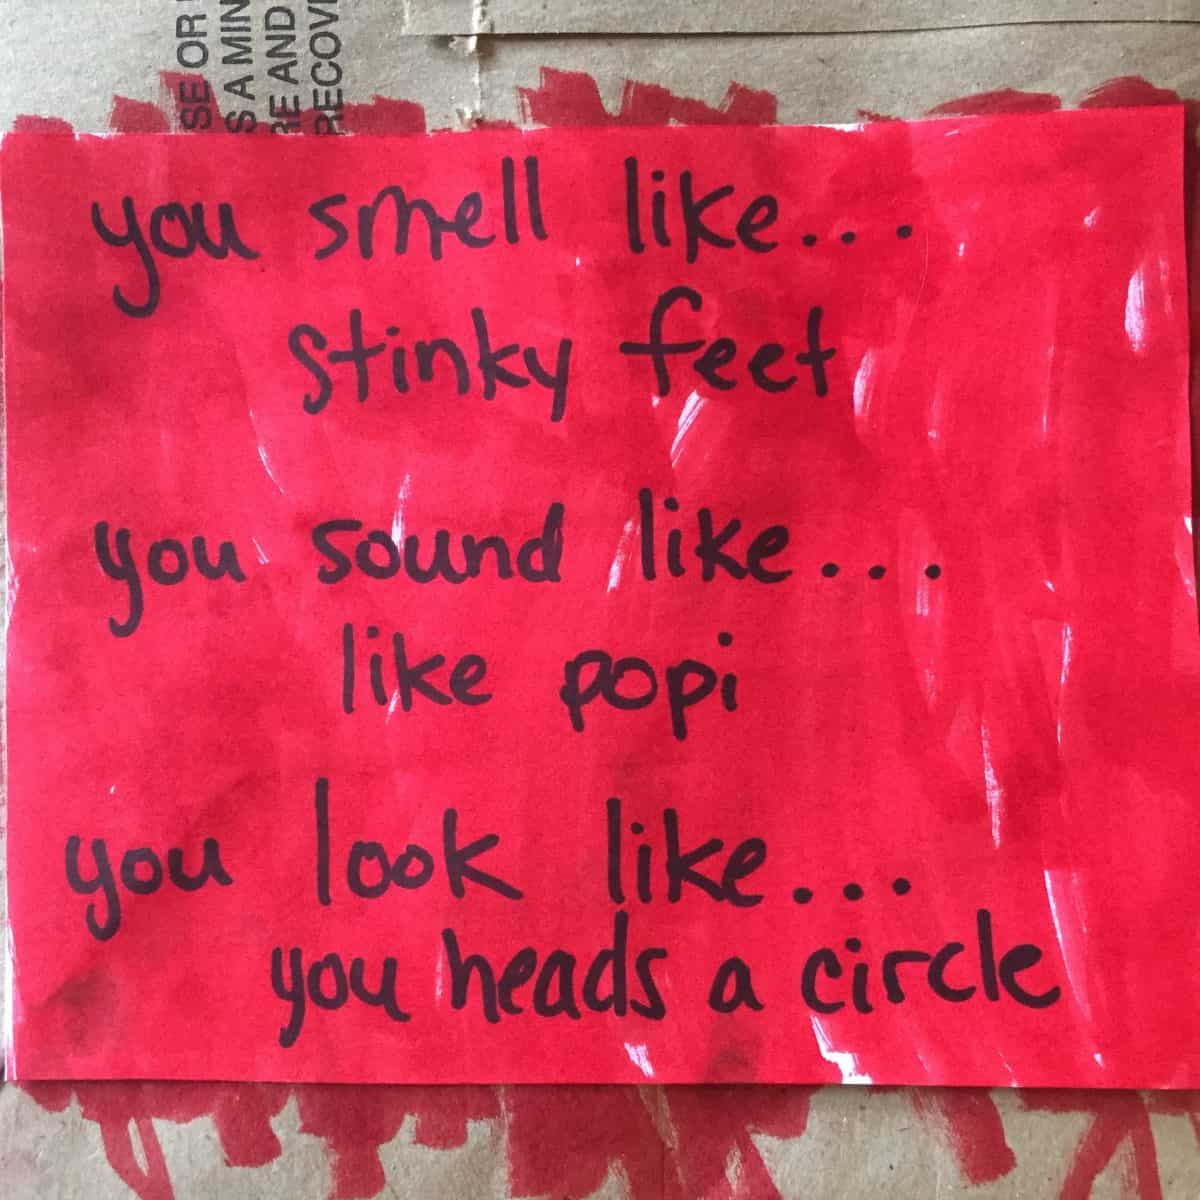 SE OR
S A MIN
RE AND
RECOV
you smell like...
stinky feet
you sound like...
like popi
you look like...
you heads a circle